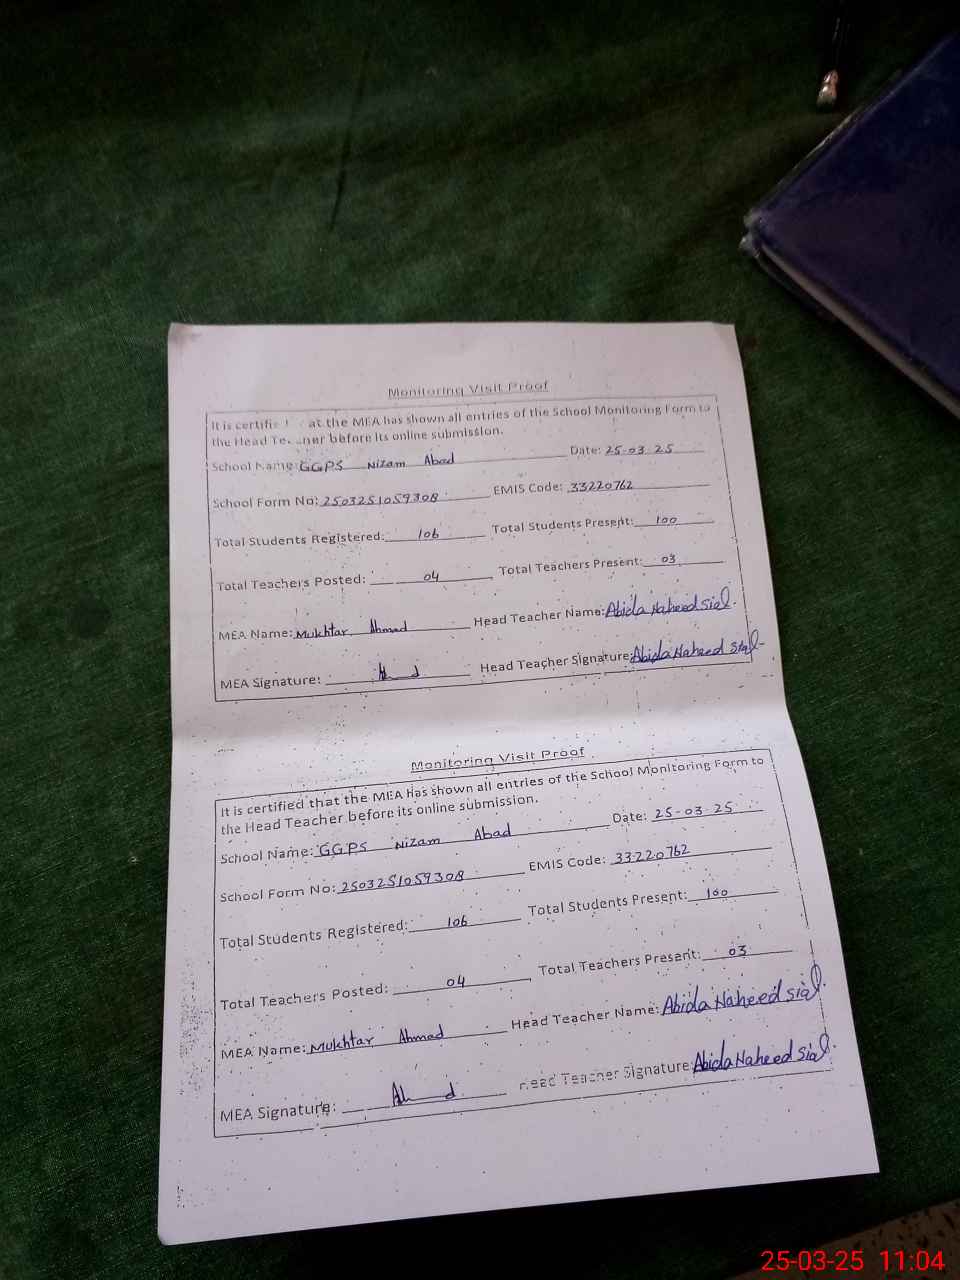 Monitoring Visit Proof
It is certifie at the MEA has shown all entries of the School Monitoring Form to
the Head Te ner before its online submission.
School Name: GGPS Nizam Abad Date: 25-03-25
School Form No: 2503251059308 EMIS Code: 33220762
Total Students Registered: 106 Total Students Present: 100
Total Teachers Posted: 04 Total Teachers Present: 03
MEA Name: Mukhtar Ahmad Head Teacher Name: Abida Naheed Sial.
MEA Signature: Head Teacher Signature: Abida Naheed Sial
Monitoring Visit Proof
It is certified that the MEA has shown all entries of the School Monitoring Form to
the Head Teacher before its online submission.
School Name: GGPS Nizam Abad Date: 25-03-25
School Form No: 2503251059308 EMIS Code: 33220762
Total Students Registered: 106 Total Students Present: 100
Total Teachers Posted: 04 Total Teachers Present: 03
MEA Name: Mukhtar Ahmad Head Teacher Name: Abida Naheed Sial.
MEA Signature: Head Teacher Signature: Abida Naheed Sial.
25-03-25 11:04